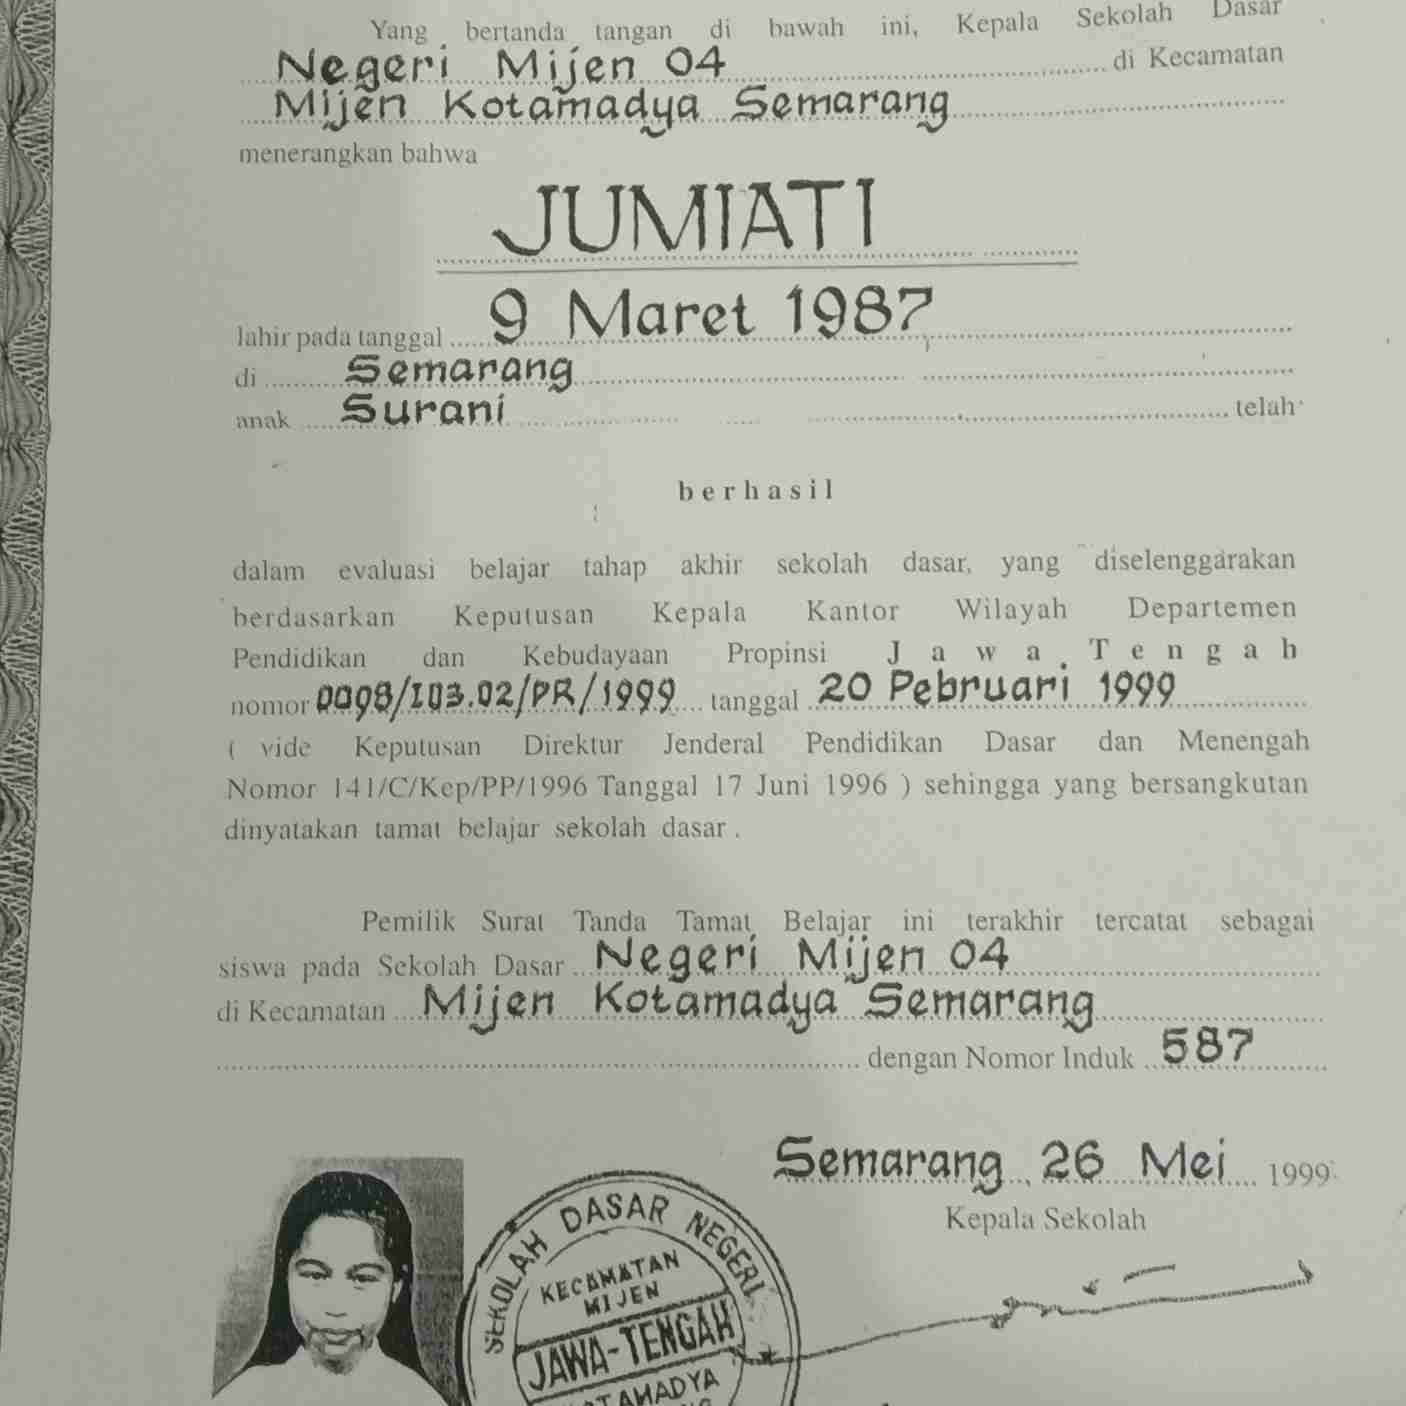 Yang bertanda tangan di bawah ini, Kepala Sekolah Dasar
Negeri Mijen 04 di Kecamatan
Mijen Kotamadya Semarang
menerangkan bahwa
JUMIATI
lahir pada tanggal 9 Maret 1987
di Semarang
anak Surani telah
berhasil
dalam evaluasi belajar tahap akhir sekolah dasar, yang diselenggarakan
berdasarkan Keputusan Kepala Kantor Wilayah Departemen
Pendidikan dan Kebudayaan Propinsi Jawa Tengah
nomor 0098/I03.02/PR/1999 tanggal 20 Pebruari 1999
( vide Keputusan Direktur Jenderal Pendidikan Dasar dan Menengah
Nomor 141/C/Kep/PP/1996 Tanggal 17 Juni 1996 ) sehingga yang bersangkutan
dinyatakan tamat belajar sekolah dasar .
Pemilik Surat Tanda Tamat Belajar ini terakhir tercatat sebagai
siswa pada Sekolah Dasar Negeri Mijen 04
di Kecamatan Mijen Kotamadya Semarang
dengan Nomor Induk 587
Semarang, 26 Mei 1999
Kepala Sekolah
SEKOLAH DASAR NEGERI
KECAMATAN
MIJEN
JAWA-TENGAH